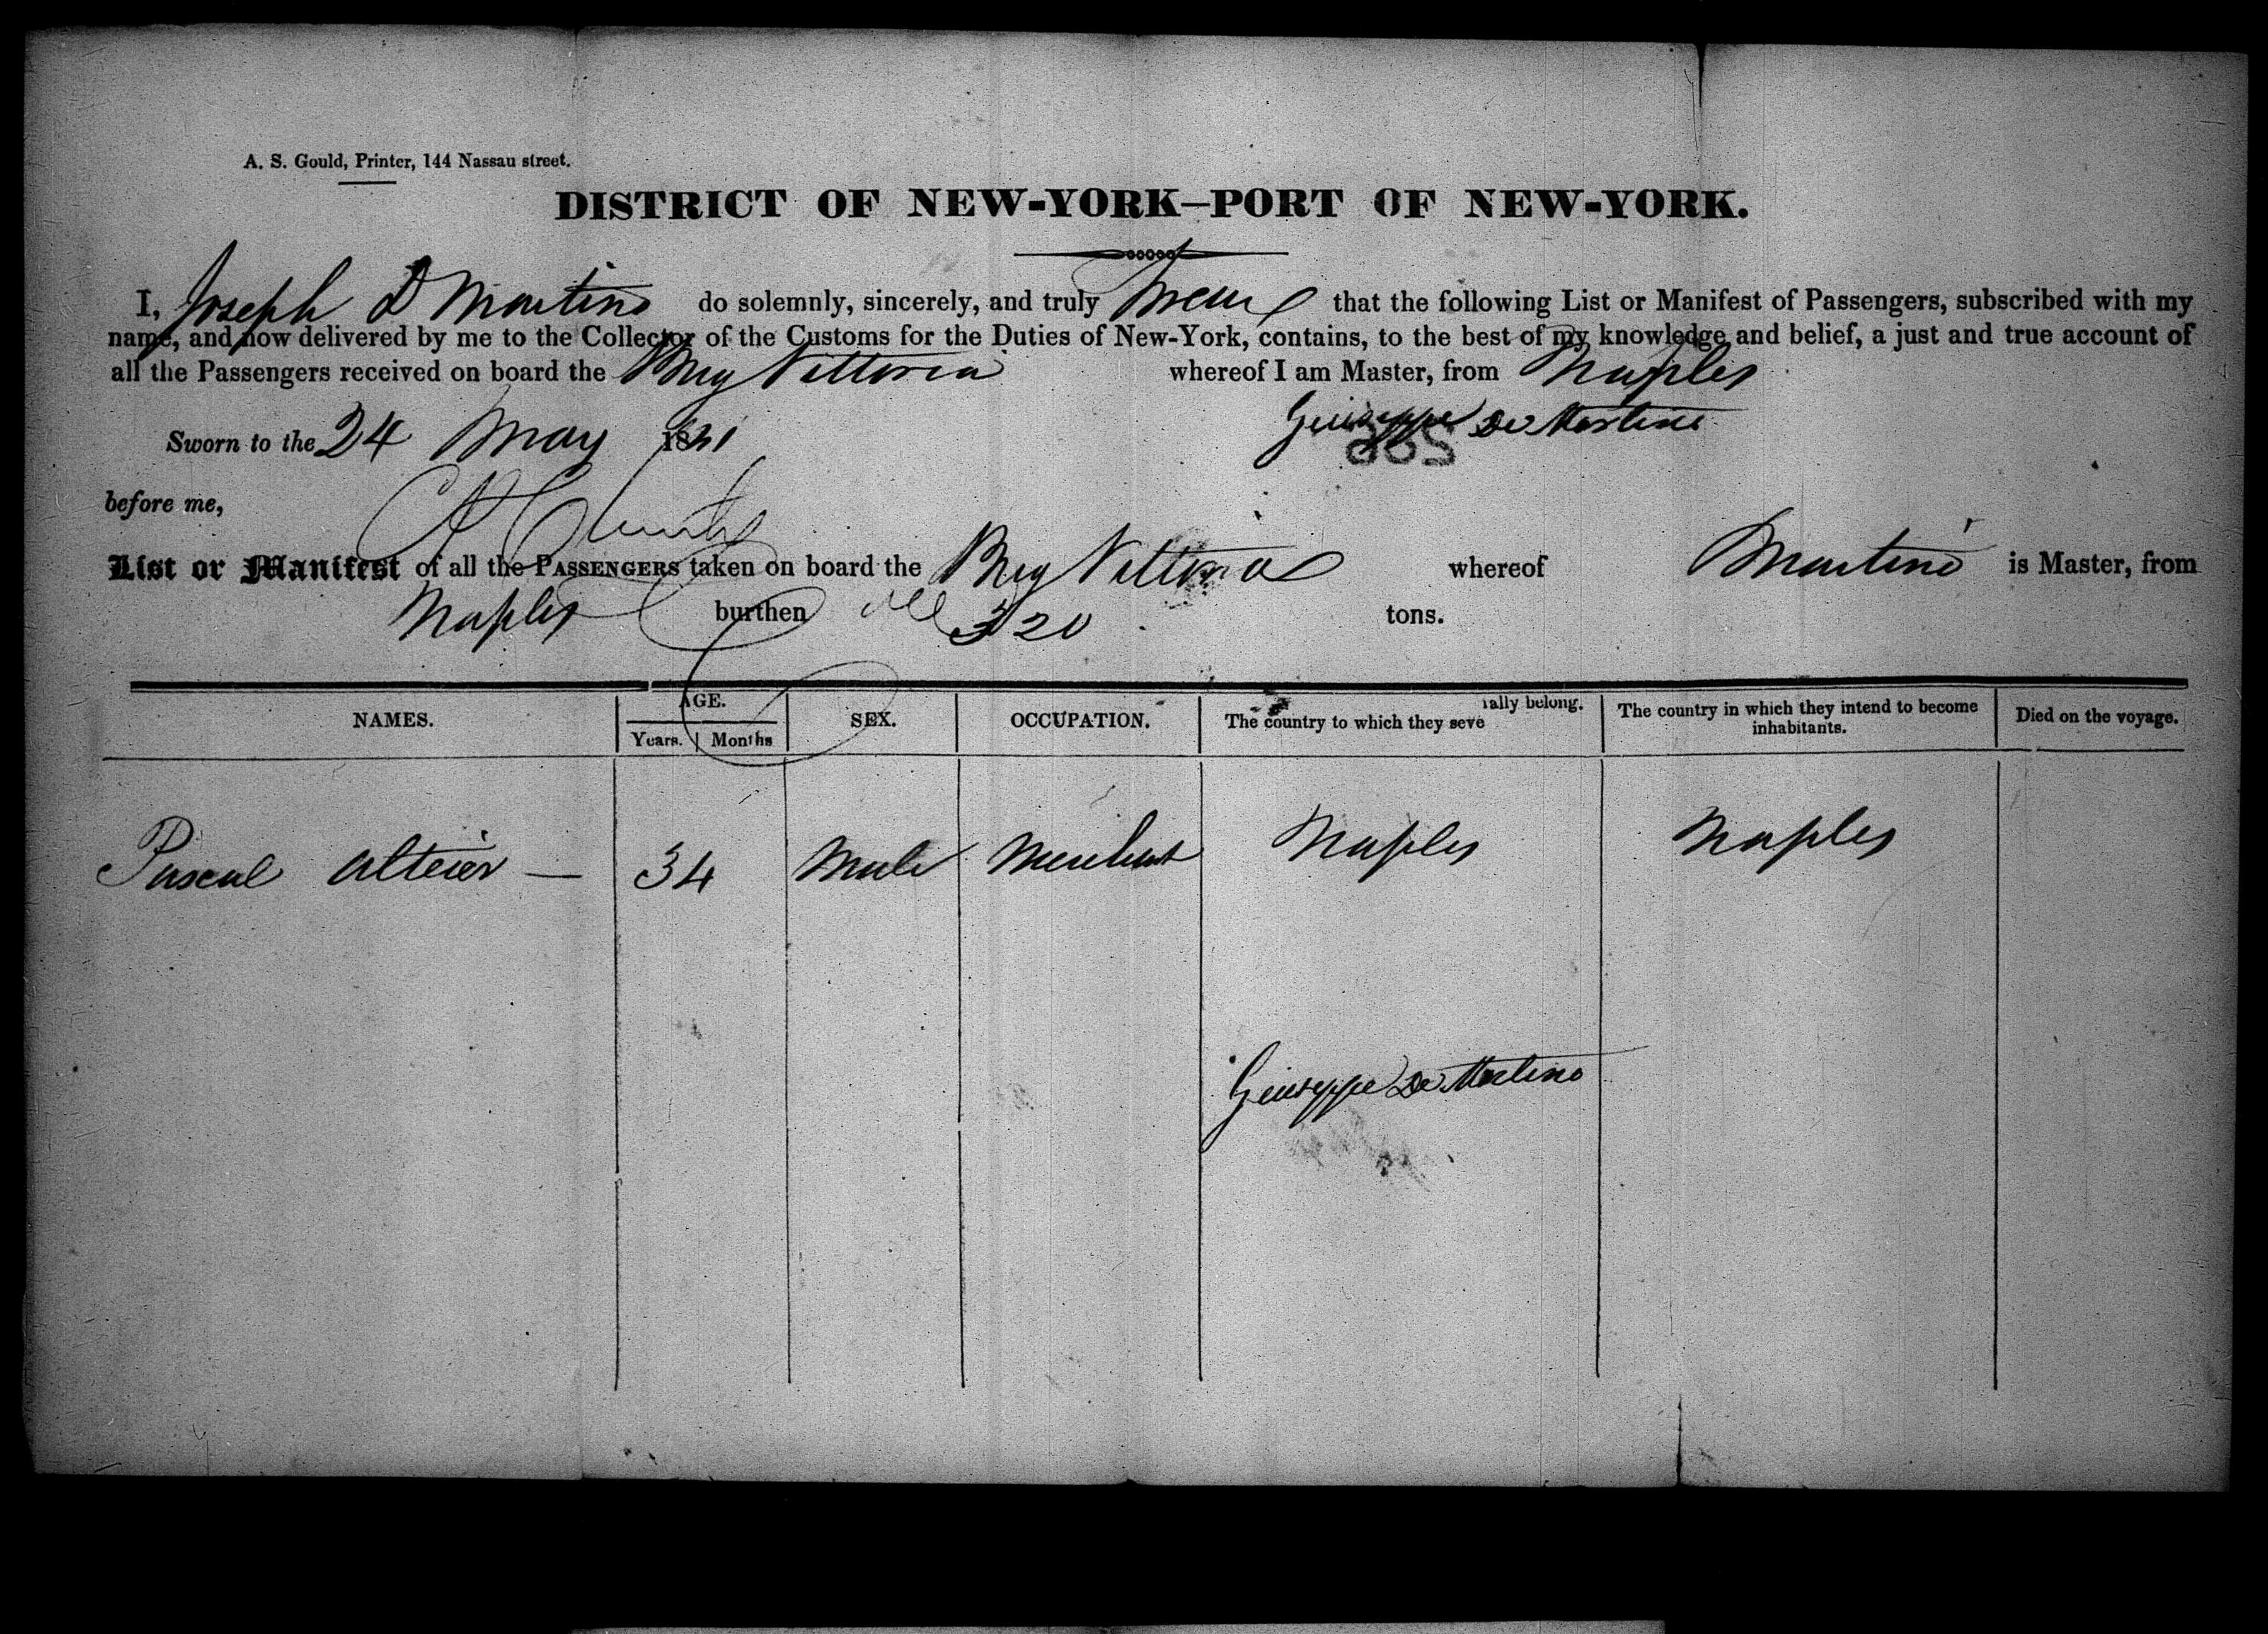 A. S. Gould, Printer, 144 Nassau street.
DISTRICT OF NEW-YORK—PORT OF NEW-YORK.
I, Joseph D Martino do solemnly, sincerely, and truly Swear that the following List or Manifest of Passengers, subscribed with my
name, and now delivered by me to the Collector of the Customs for the Duties of New-York, contains, to the best of my knowledge and belief, a just and true account of
all the Passengers received on board the Brig Vittoria whereof I am Master, from Naples
Sworn to the 24 May 18 Giuseppe De Martino
before me,
List or Manifest of all the PASSENGERS taken on board the Brig Vittoria whereof Martino is Master, from
Naples burthen 320 tons.
NAMES. AGE. Years. Months SEX. OCCUPATION. The country to which they severally belong. The country in which they intend to become inhabitants. Died on the voyage.
Pascal Alteier — 34 Male Merchant Naples Naples
Giuseppe De Martino